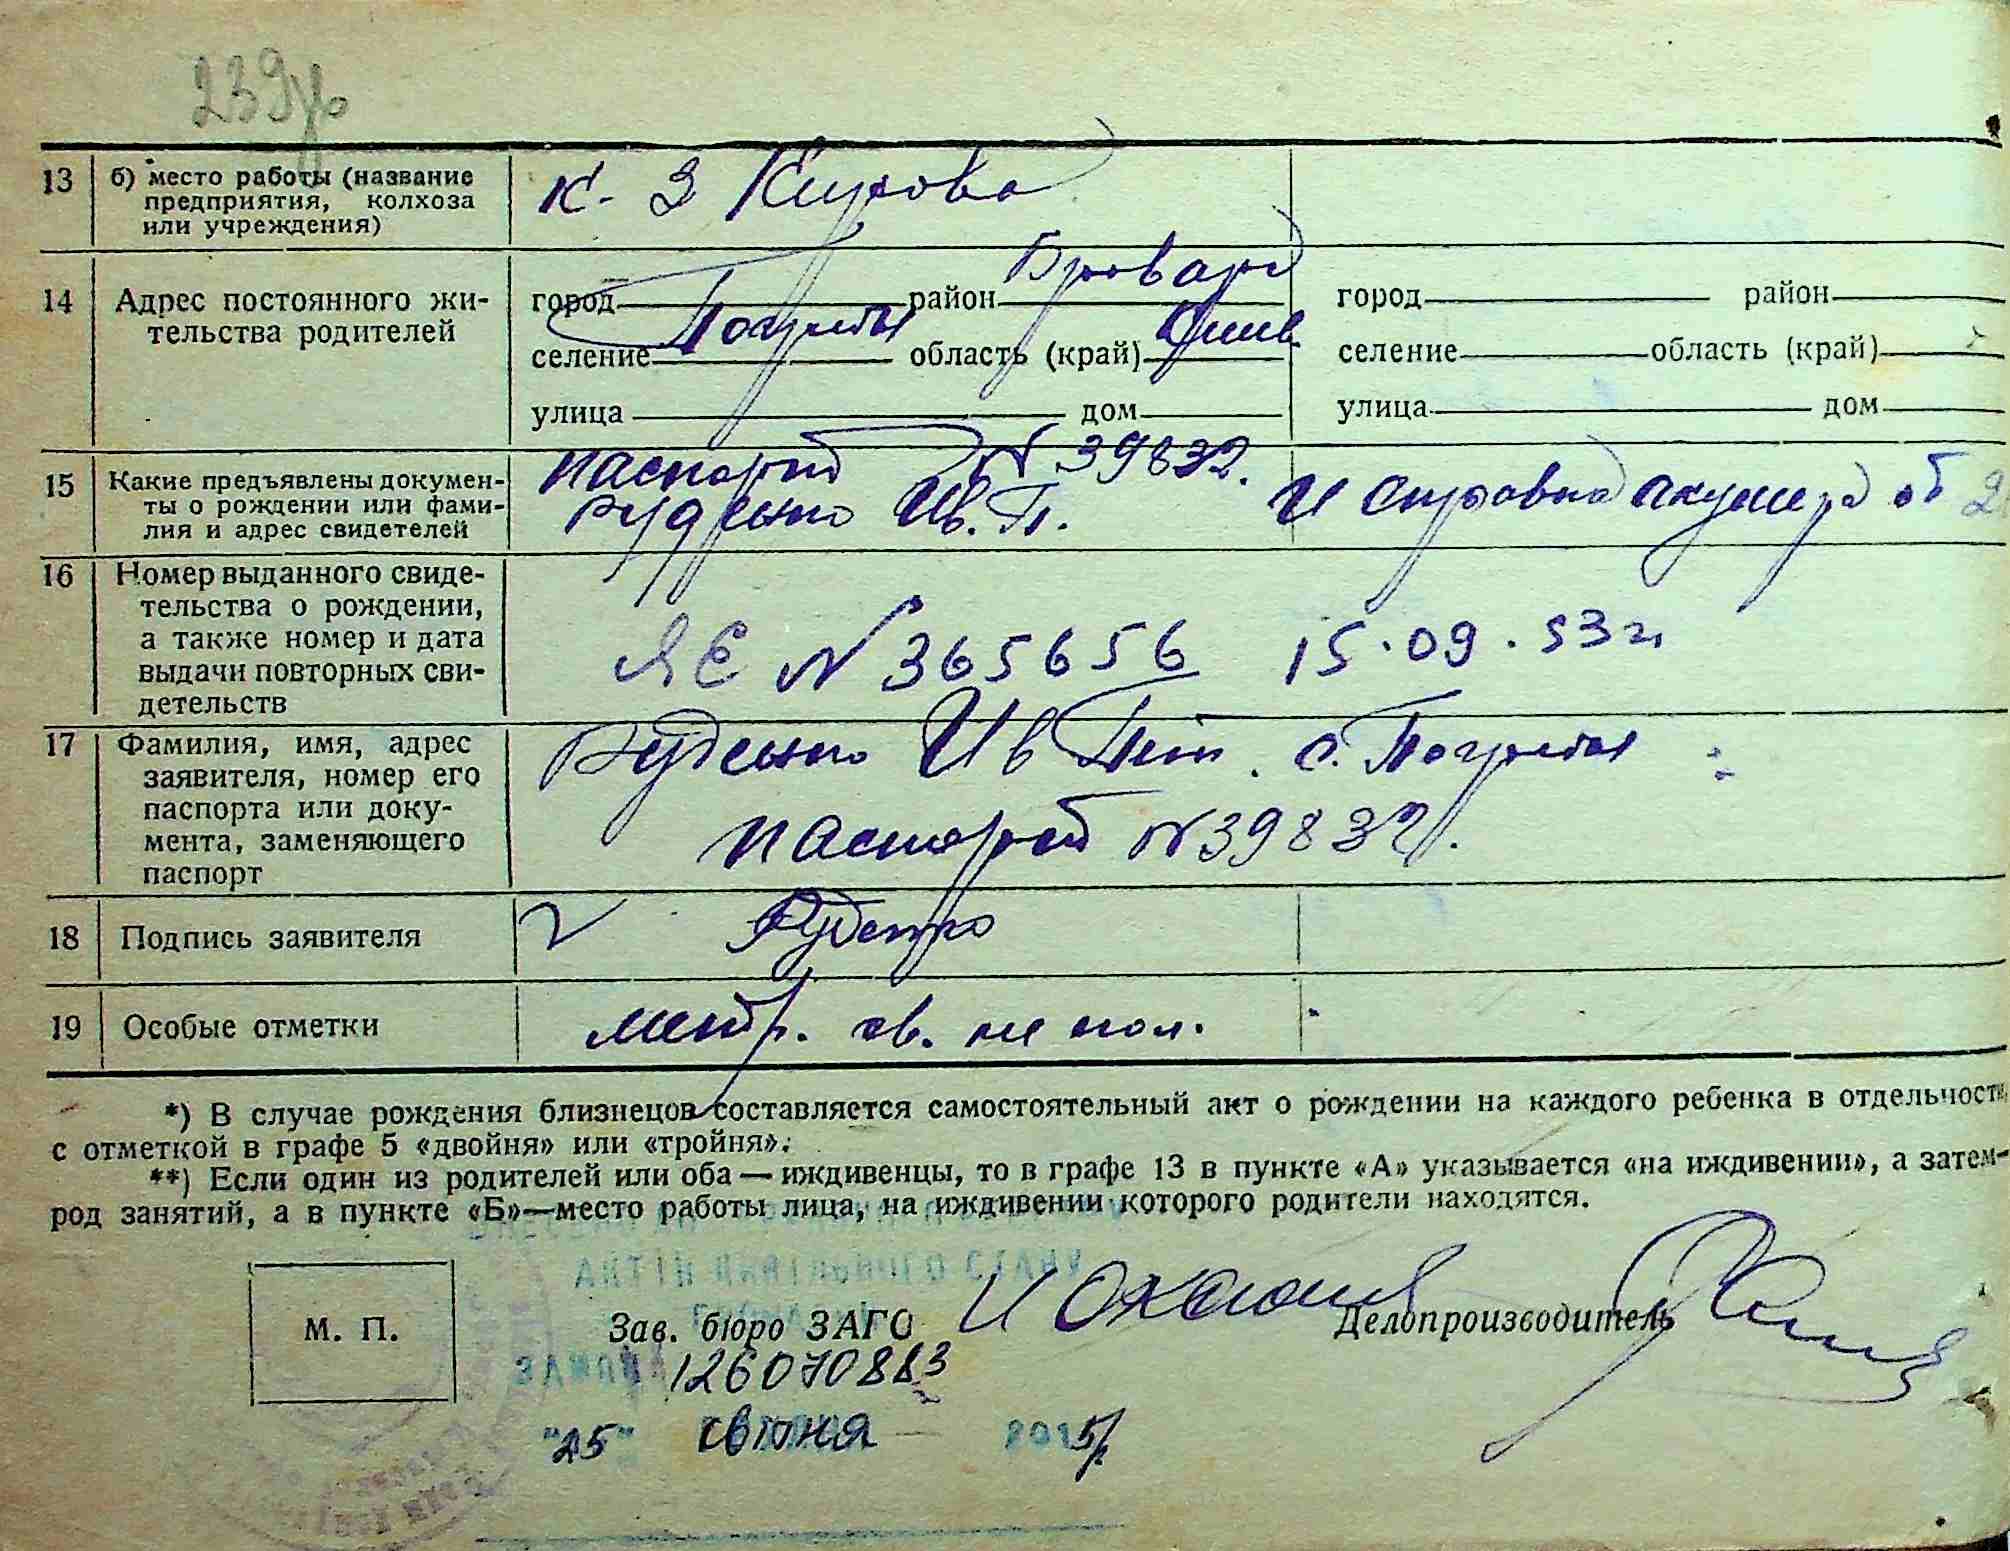 239
13 б) место работы (название предприятия, колхоза или учреждения) к-з Кирова
14 Адрес постоянного жительства родителей
город район Бровары город район
селение Погребы область (край) Киев. селение область (край)
улица дом улица дом
15 Какие предъявлены документы о рождении или фамилия и адрес свидетелей
паспорт N 39832.
Руденко Ив. П. и справка акушера об
16 Номер выданного свидетельства о рождении, а также номер и дата выдачи повторных свидетельств
ЯЄ N 365656 15.09.53 г.
17 Фамилия, имя, адрес заявителя, номер его паспорта или документа, заменяющего паспорт
Руденко Ив Пет. с. Погребы
паспорт N 39832.
18 Подпись заявителя V Руденко
19 Особые отметки метр. св. не
*) В случае рождения близнецов составляется самостоятельный акт о рождении на каждого ребенка в отдельности
с отметкой в графе 5 «двойня» или «тройня».
**) Если один из родителей или оба — иждивенцы, то в графе 13 в пункте «А» указывается «на иждивении», а затем—
род занятий, а в пункте «Б»—место работы лица, на иждивении которого родители находятся.
АКТІВ ЦИВІЛЬНОГО СТАНУ
М. П. Зав. бюро ЗАГС Делопроизводитель
126070883
"25" 2015